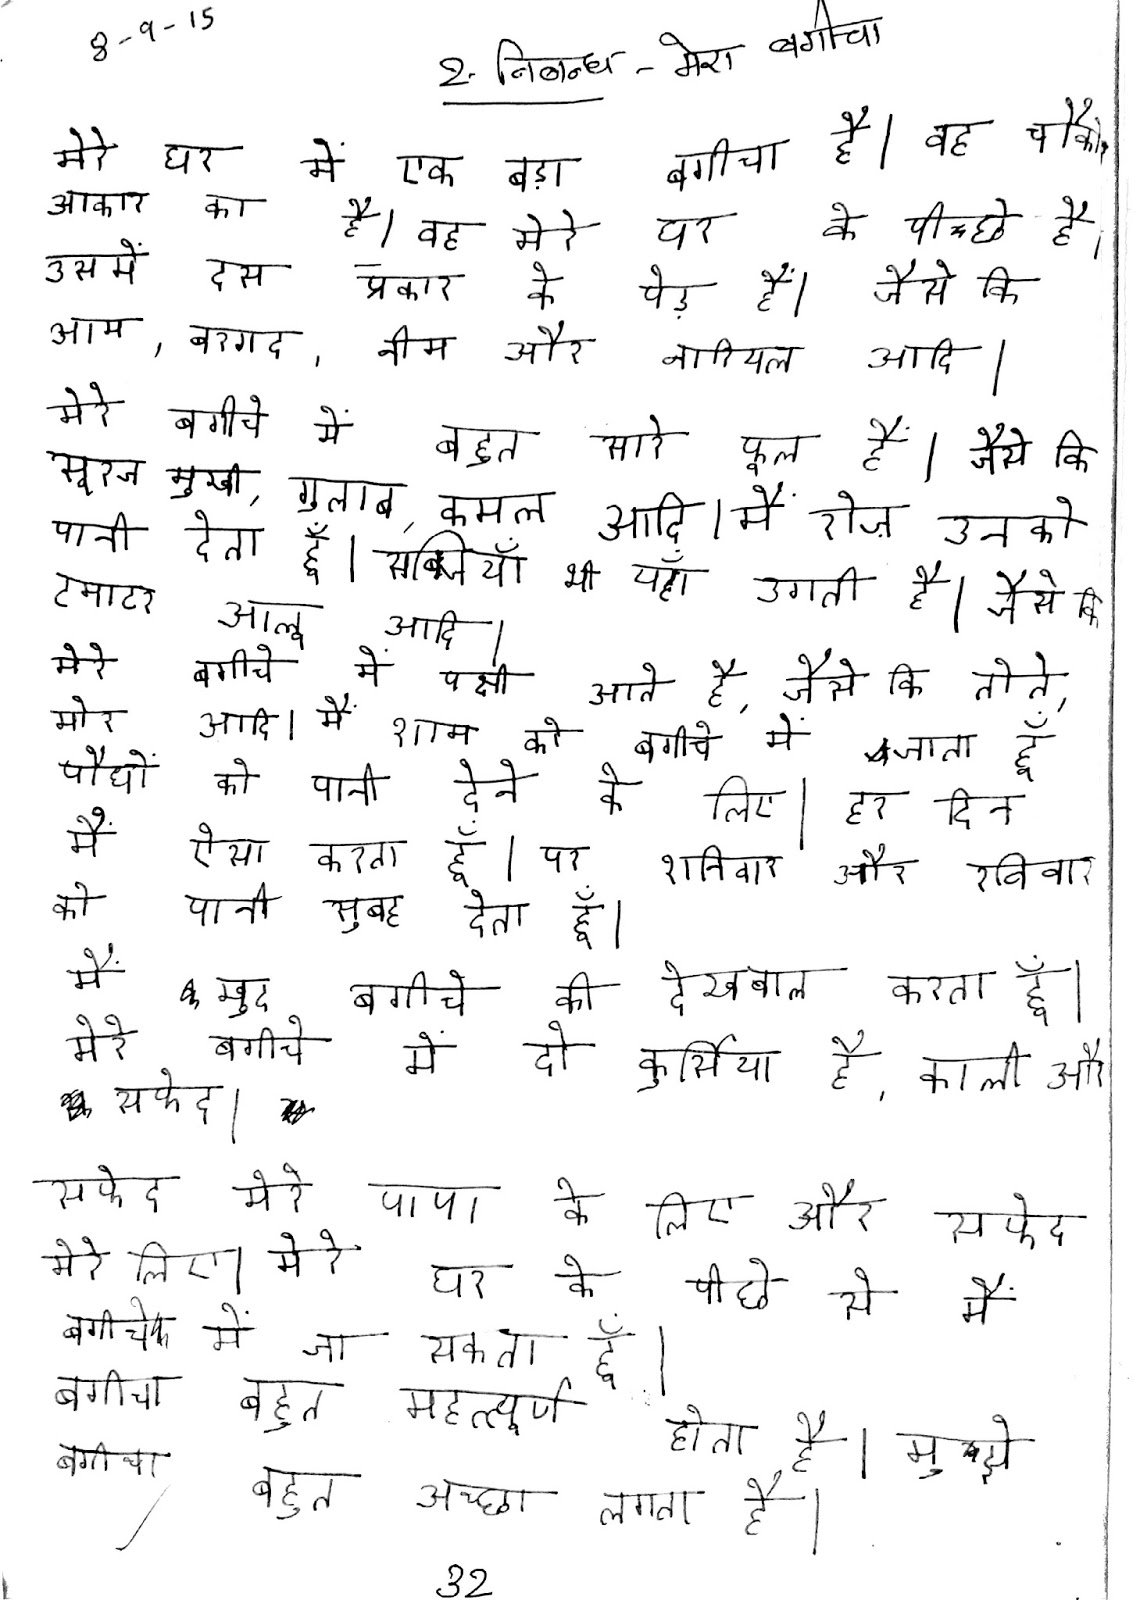 8-9-15
2. निबन्ध - मेरा बगीचा
मेरे घर में एक बड़ा बगीचा है। वह चौकोर
आकार का है। वह मेरे घर के पीछे है।
उसमें दस प्रकार के पेड़ हैं। जैसे कि
आम, बरगद, नीम और नारियल आदि।
मेरे बगीचे में बहुत सारे फूल हैं। जैसे कि
सूरज मुखी, गुलाब, कमल आदि। मैं रोज़ उनको
पानी देता हूँ। सब्जियाँ भी यहाँ उगती है। जैसे कि
टमाटर आलू आदि।
मेरे बगीचे में पक्षी आते है, जैसे कि तोते,
मोर आदि। मैं शाम को बगीचे में जाता हूँ
पौधों को पानी देने के लिए। हर दिन
मैं ऐसा करता हूँ। पर शनिवार और रविवार
को पानी सुबह देता हूँ।
मैं खुद बगीचे की देखबाल करता हूँ।
मेरे बगीचे में दो कुर्सिया है, काली और
सफेद।
सफेद मेरे पापा के लिए और सफेद
मेरे लिए। मेरे घर के पीछे से मैं
बगीचे में जा सकता हूँ।
बगीचा बहुत महत्त्पूर्ण होता है। मुझे
बगीचा बहुत अच्छा लगता है।
32